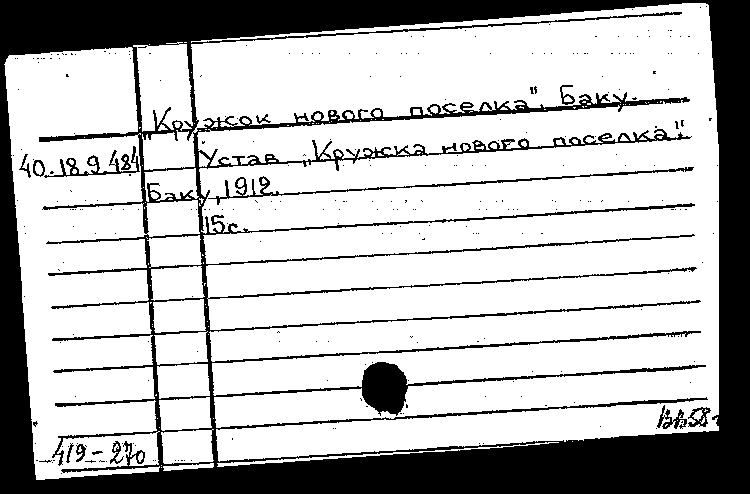 „Кружок нового поселка". Баку.
40.18.9.484 Устав „Кружка нового поселка".
Баку, 1912.
15с.
419-270